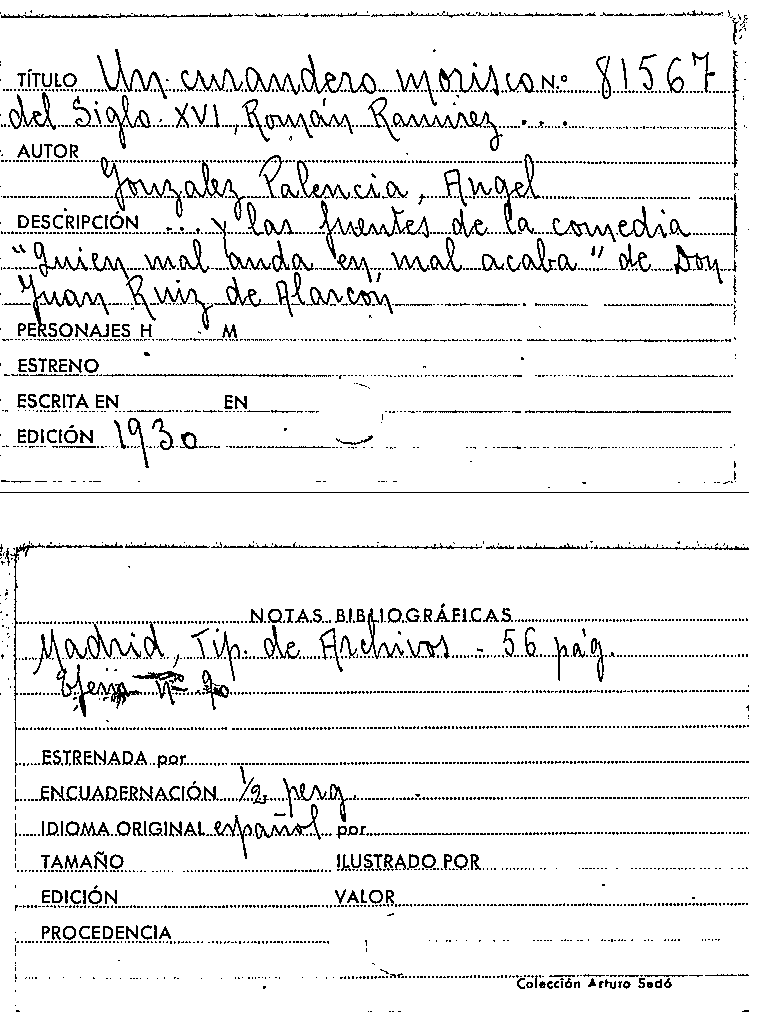 TÍTULO Un curandero morisco N.º 81567
del Siglo XVI, Román Ramirez ...
AUTOR
Gonzalez Palencia, Angel
DESCRIPCIÓN ... y las fuentes de la comedia
"Quien mal anda en mal acaba" de Don
Juan Ruiz de Alarcón
PERSONAJES H M
ESTRENO
ESCRITA EN EN
EDICIÓN 1930
NOTAS BIBLIOGRÁFICAS
Madrid, Tip. de Archivos - 56 pág.
nº 90
ESTRENADA por
ENCUADERNACIÓN 1/2 perg.
IDIOMA ORIGINAL español por
TAMAÑO ILUSTRADO POR
EDICIÓN VALOR
PROCEDENCIA
Colección Arturo Sedó